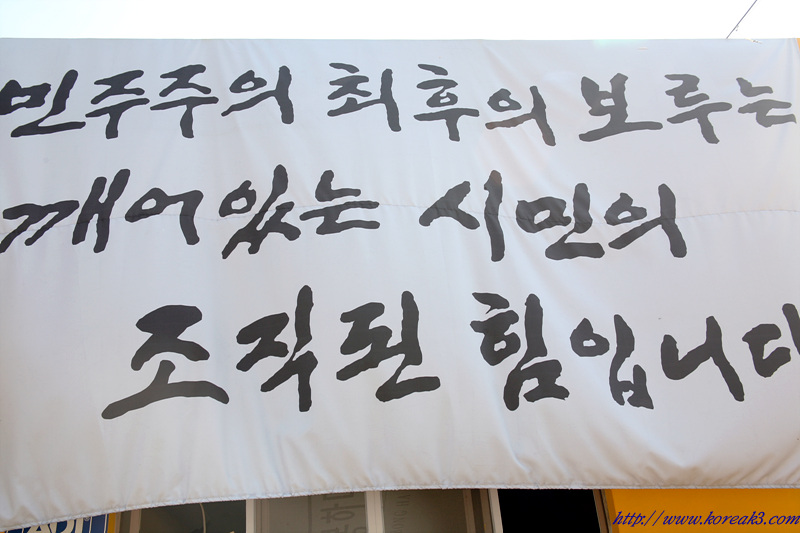 민주주의 최후의 보루는
깨어있는 시민의
조직된 힘입니다
http://www.koreak3.com